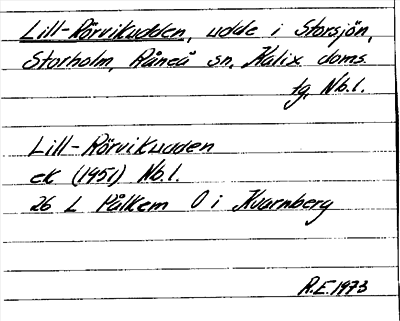 Lill-Rörvikudden, udde i Storsjön,
Storholm, Råneå sn, Kalix doms.
tg, Nb.l.
Lill-Rörvikudden
ek (1951) Nb.l.
26 L Pålkem O i Kvarnberg
R.E. 1973